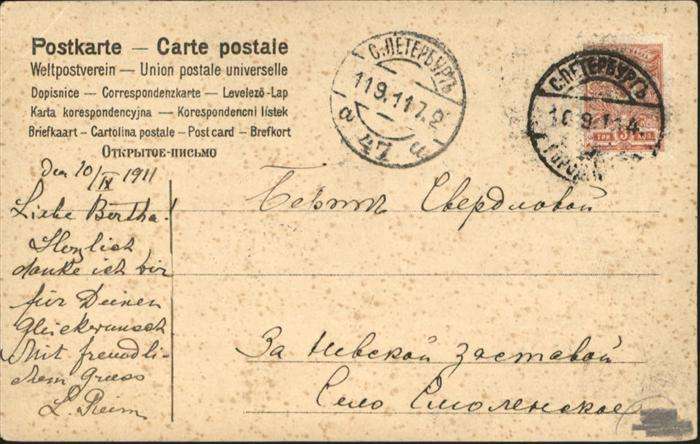 Postkarte — Carte postale
Weltpostverein — Union postale universelle
Dopisnice — Correspondenzkarte — Levelező-Lap
Karta korespondencyjna — Korespondencni listek
Briefkaart — Cartolina postale — Post card — Brefkort
ОТКРЫТОЕ-ПИСЬМО
С.ПЕТЕРБУРГЪ
11 9.11 7.2
47
С.ПЕТЕРБУРГЪ
10 9 11 4
Den 10/IX 1911
Liebe Bertha!
Herzlich
danke ich Dir
für Deinen
Glückwunsch.
Mit freundli-
chem Gruss
Бертѣ Свердловой
За Невской заставой
Село Смоленское